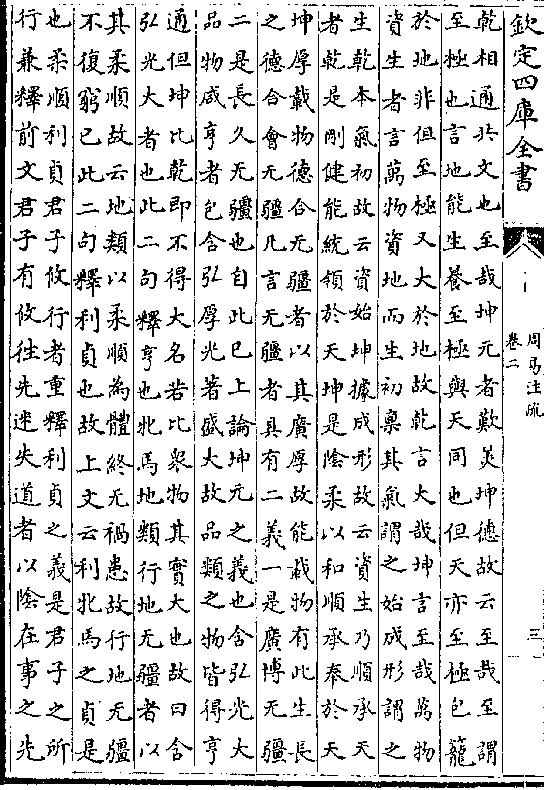 欽定四庫全書
周易注疏
卷二
三
乾相通共文也至哉坤元者歎美坤德故云至哉至謂
至極也言地能生養至極與天同也但天亦至極包籠
於地非但至極又大於地故乾言大哉坤言至哉萬物
資生者言萬物資地而生初稟其氣謂之始成形謂之
生乾本氣初故云資始坤據成形故云資生乃順承天
者乾是剛健能統領於天坤是陰柔以和順承奉於天
坤厚載物德合无疆者以其廣厚故能載物有此生長
之德合會无疆凡言无疆者具有二義一是廣博无疆
二是長久无疆也自此已上論坤元之義也含弘光大
品物咸亨者包含弘厚光著盛大故品類之物皆得亨
通但坤比乾即不得大名若比衆物其實大也故曰含
弘光大者也此二句釋亨也牝馬地類行地无疆者以
其柔順故云地類以柔順為體終无禍患故行地无疆
不復窮已此二句釋利貞也故上文云利牝馬之貞是
也柔順利貞君子攸行者重釋利貞之義是君子之所
行兼釋前文君子有攸往先迷失道者以陰在事之先